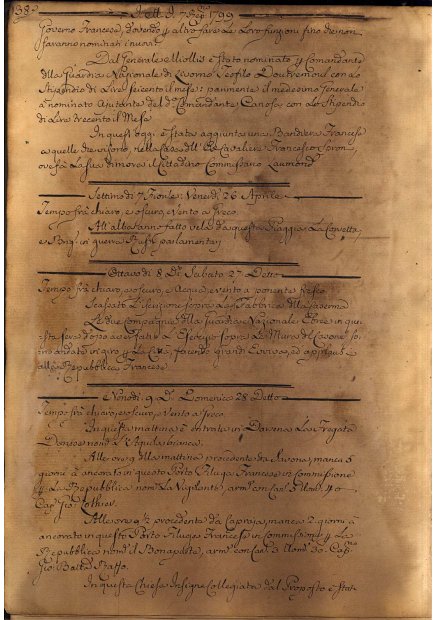 38
Governo Francese, dovendo gl'altri fare le loro funzioni fino che non
saranno nominati i nuovi.
Dal Generale Miollis è stato nominato p. Comandante
della Guardia Nazionale di Livorno Teofilo Doutremoul con lo
Stipendio di Lire seicento il mese: parimente il medesimo Generale
à nominato Aiutante del d.o Comandante Canosa, con lo Stipendio
di Lire trecento il Mese
In quest'oggi è stata aggiunta una Bandiera Francese
a quelle che vi sono nella Casa dell' Cavaliere Francesco
ov'è la sua dimora il Cittadino Commissario
Settimo di 7 Venerdì 26 Aprile
Tempo frà chiaro, e oscuro, e Vento a Greco.
All'alba anno fatto vela da questa Spiaggia La Corvetta,
e Brig. in guerra parlamentarj
Ottavo di 8 D. Sabato 27 Detto
Tempo frà chiaro, e oscuro, e Acqua, e vento a ponente fresco
l'iscrizione sopra La Fabbrica della Caserma
Le due Compagnie della Guardia Nazionale in que-
sta sera dopo aver fatto L'Esercizio sopra Le Mura
in giro p. La Città, facendo grandi Evviva, ed applausi
alla Repubblica Francese
Nono di 9 D. Domenica 28 Detto
Tempo frà chiaro, e oscuro, e Vento a Greco
In questa mattina è entrata in Darsena La Fregata
Danese nom.a L'Aquila bianca.
Alle ore 9 della mattina procedente da Savona, manca 5
giorni à ancorato in questo Porto Filuga Francese in Commissione
p. La Repubblica nom.a La Vigilante, arm.a con Can. 5 Uom. 40
Cap.
Alle ore 9 1/2 procedente da Capraja, manca 2 giorni à
ancorato in questo Porto Filugo Francese in Commissione p. La
Repubblica nom.o il Bonaparte, arm.o con Can. 3 Uom. 30. Cap.
Gio. Batta
In questa Chiesa Insigne Collegiata dal Proposto è stat-